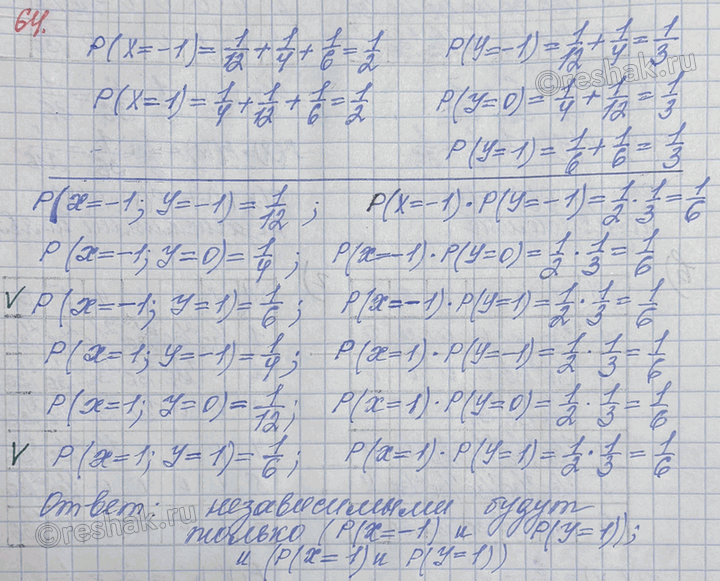 64.
P(X=-1)=1/12+1/4+1/6=1/2 P(Y=-1)=1/12+1/4=1/3
P(X=1)=1/4+1/12+1/6=1/2 P(Y=0)=1/4+1/12=1/3
P(Y=1)=1/6+1/6=1/3
P(x=-1; y=-1)=1/12; P(X=-1)·P(Y=-1)=1/2·1/3=1/6
P(x=-1; y=0)=1/4; P(x=-1)·P(Y=0)=1/2·1/3=1/6
V P(x=-1; y=1)=1/6; P(x=-1)·P(Y=1)=1/2·1/3=1/6
P(x=1; y=-1)=1/4; P(x=1)·P(Y=-1)=1/2·1/3=1/6
P(x=1; y=0)=1/12; P(x=1)·P(Y=0)=1/2·1/3=1/6
V P(x=1; y=1)=1/6; P(x=1)·P(Y=1)=1/2·1/3=1/6
Ответ: независимыми будут
только (P(X=-1) и P(Y=1));
и (P(X=1) и P(Y=1))
©reshak.ru
©reshak.ru
©reshak.ru